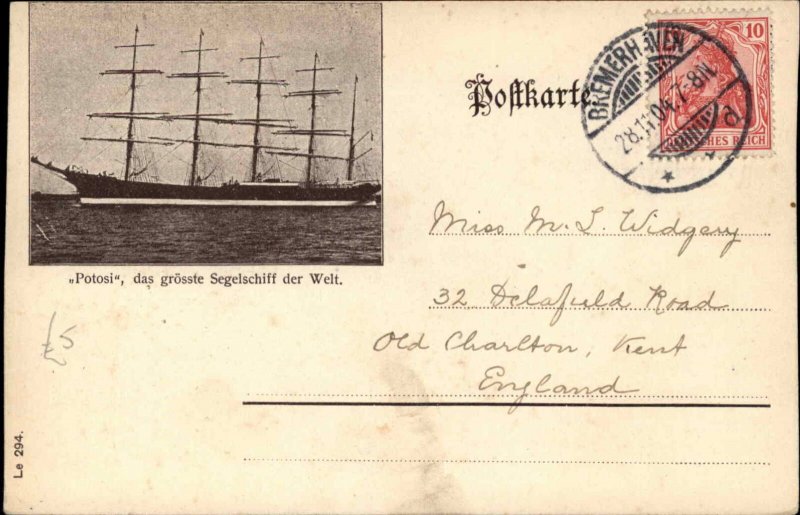 Postkarte
10
DEUTSCHES REICH
BREMERHAVEN
28.11.04.7-8N.
„Potosi“, das grösste Segelschiff der Welt.
Miss M. L. Widgery
32 Delafield Road
Old Charlton, Kent
England
£5
Le 294.